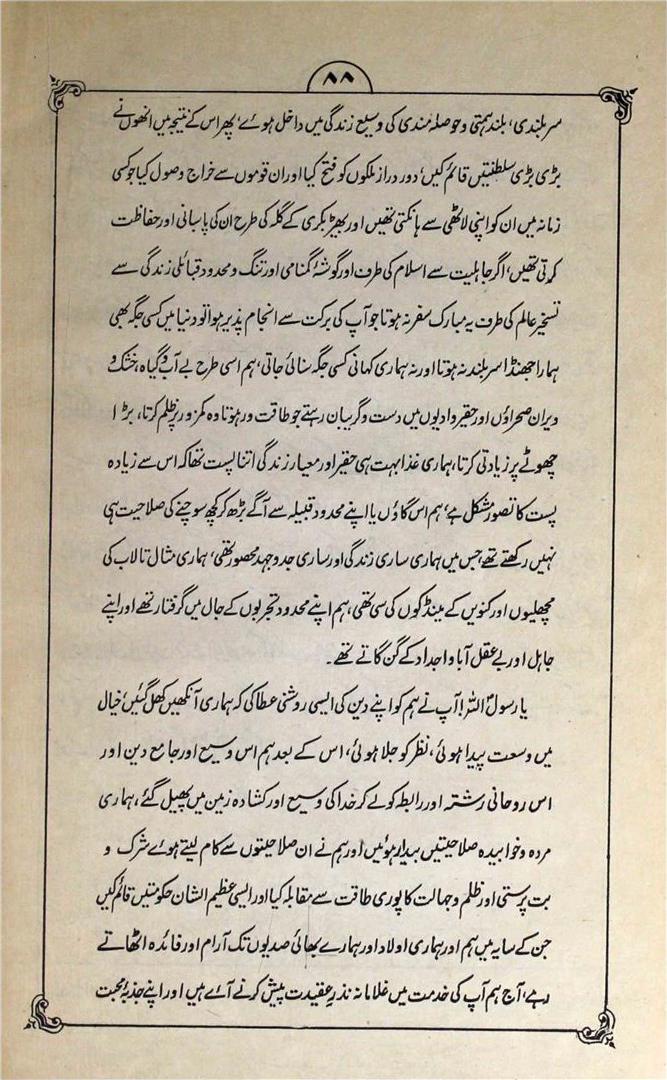 ۸۸
سربلندی، بلند ہمتی و حوصلہ مندی کی وسیع زندگی میں داخل ہوئے، پھر اس کے نتیجہ میں انھوں نے
بڑی بڑی سلطنتیں قائم کیں، دور دراز ملکوں کو فتح کیا اور ان قوموں سے خراج وصول کیا جو کسی
زمانہ میں ان کو اپنی لاٹھی سے ہانکتی تھیں اور بھیڑ بکری کے گلہ کی طرح ان کی پاسبانی اور حفاظت
کرتی تھیں، اگر جاہلیت سے اسلام کی طرف اور گوشۂ گمنامی اور تنگ و محدود قبائلی زندگی سے
تسخیر عالم کی طرف یہ مبارک سفر نہ ہوتا جو آپ کی برکت سے انجام پذیر ہوا تو دنیا میں کسی جگہ بھی
ہمارا جھنڈا سربلند نہ ہوتا اور نہ ہماری کہانی کسی جگہ سنائی جاتی، ہم اسی طرح بے آب و گیاہ، خشک و
ویران صحراؤں اور حقیر وادیوں میں دست و گریبان رہتے جو طاقت ور ہوتا وہ کمزور پر ظلم کرتا، بڑا
چھوٹے پر زیادتی کرتا، ہماری غذا بہت ہی حقیر اور معیار زندگی اتنا پست تھا کہ اس سے زیادہ
پست کا تصور مشکل ہے، ہم اس گاؤں یا اپنے محدود قبیلہ سے آگے بڑھ کر کچھ سوچنے کی صلاحیت ہی
نہیں رکھتے تھے جس میں ہماری ساری زندگی اور ساری جدوجہد محصور تھی، ہماری مثال تالاب کی
مچھلیوں اور کنویں کے مینڈکوں کی سی تھی، ہم اپنے محدود تجربوں کے جال میں گرفتار تھے اور اپنے
جاہل اور بے عقل آبا و اجداد کے گن گاتے تھے۔
یا رسول اللہ! آپ نے ہم کو اپنے دین کی ایسی روشنی عطا کی کہ ہماری آنکھیں کھل گئیں، خیال
میں وسعت پیدا ہوئی، نظر کو جلا ہوئی، اس کے بعد ہم اس وسیع اور جامع دین اور
اس روحانی رشتہ اور رابطہ کو لے کر خدا کی وسیع اور کشادہ زمین میں پھیل گئے، ہماری
مردہ و خوابیدہ صلاحیتیں بیدار ہوئیں اور ہم نے ان صلاحیتوں سے کام لیتے ہوئے شرک و
بت پرستی اور ظلم و جہالت کا پوری طاقت سے مقابلہ کیا اور ایسی عظیم الشان حکومتیں قائم کیں
جن کے سایہ میں ہم اور ہماری اولاد اور ہمارے بھائی صدیوں تک آرام اور فائدہ اٹھاتے
رہے، آج ہم آپ کی خدمت میں غلامانہ نذر عقیدت پیش کرنے آئے ہیں اور اپنے جذبۂ محبت